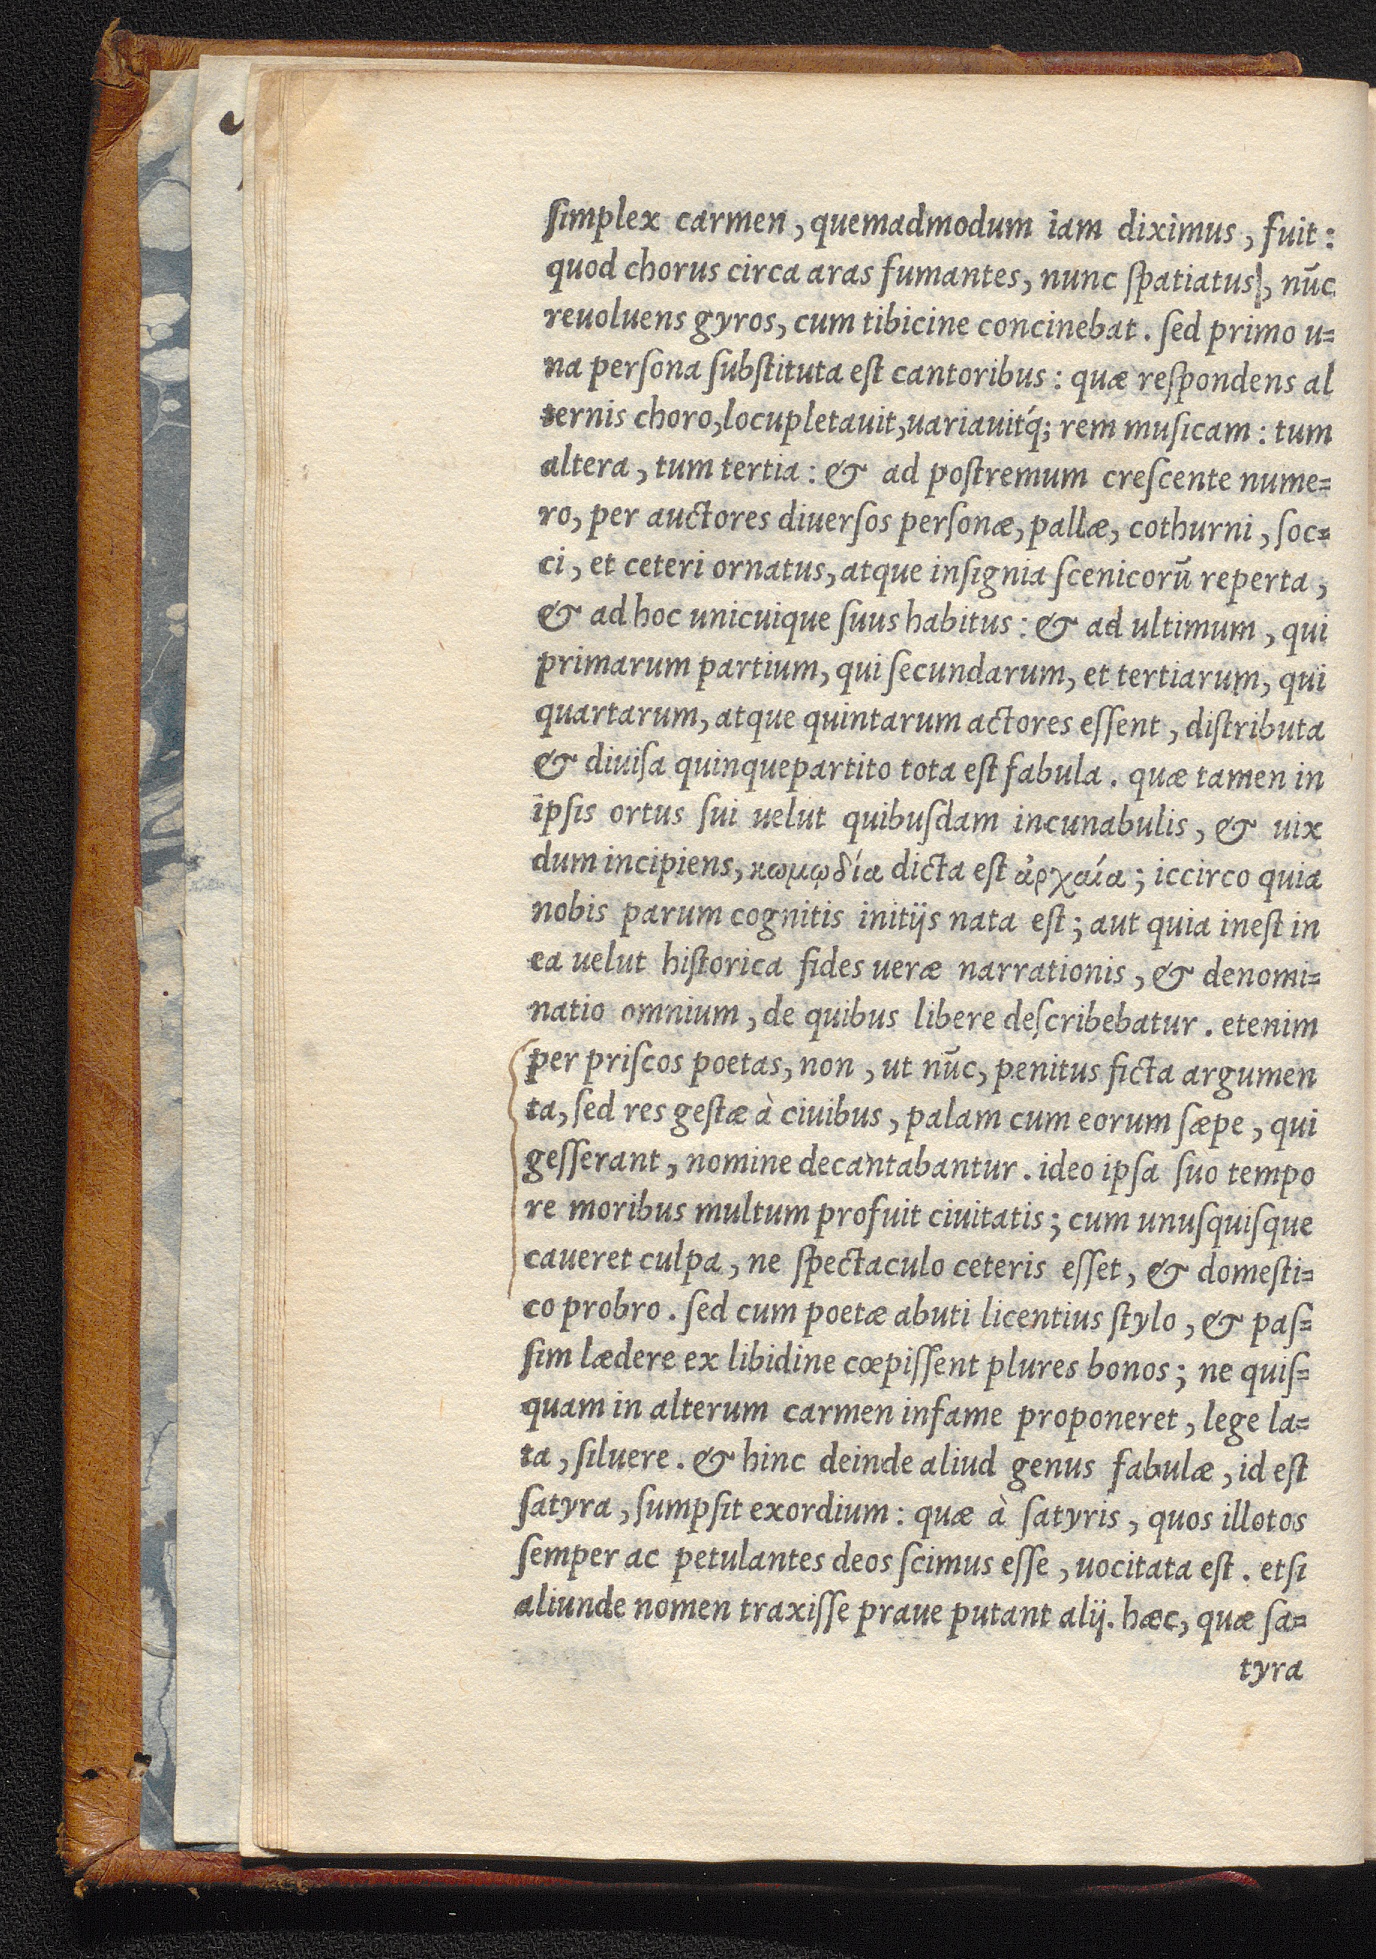 ſimplex carmen, quemadmodum iam diximus, fuit:
quod chorus circa aras fumantes, nunc ſpatiatus, nūc
reuoluens gyros, cum tibicine concinebat. ſed primo u=
na perſona ſubſtituta eſt cantoribus: quæ reſpondens al
ternis choro, locupletauit, uariauitq́; rem muſicam: tum
altera, tum tertia: & ad poſtremum creſcente nume=
ro, per auctores diuerſos perſonæ, pallæ, cothurni, ſoc=
ci, et ceteri ornatus, atque inſignia ſcenicorū reperta,
& ad hoc unicuique ſuus habitus: & ad ultimum, qui
primarum partium, qui ſecundarum, et tertiarum, qui
quartarum, atque quintarum actores eſſent, diſtributa
& diuiſa quinquepartito tota eſt fabula. quæ tamen in
ipſis ortus ſui uelut quibuſdam incunabulis, & uix
dum incipiens, κωμῳδία dicta eſt ἀρχαία; iccirco quia
nobis parum cognitis initijs nata eſt; aut quia ineſt in
ea uelut hiſtorica fides ueræ narrationis, & denomi=
natio omnium, de quibus libere deſcribebatur. etenim
per priſcos poetas, non, ut nūc, penitus ficta argumen
ta, ſed res geſtæ à ciuibus, palam cum eorum ſæpe, qui
geſſerant, nomine decantabantur. ideo ipſa ſuo tempo
re moribus multum profuit ciuitatis; cum unuſquiſque
caueret culpa, ne ſpectaculo ceteris eſſet, & domeſti=
co probro. ſed cum poetæ abuti licentius ſtylo, & paſ=
ſim lædere ex libidine cœpiſſent plures bonos; ne quiſ=
quam in alterum carmen infame proponeret, lege la=
ta, ſiluere. & hinc deinde aliud genus fabulæ, id eſt
ſatyra, ſumpſit exordium: quæ à ſatyris, quos illotos
ſemper ac petulantes deos ſcimus eſſe, uocitata eſt. etſi
aliunde nomen traxiſſe praue putant alij. hæc, quæ ſa=
tyra